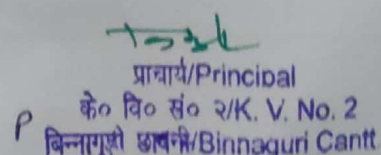 प्राचार्य/Principal
के० वि० सं० २/K. V. No. 2
P
बिन्नागुड़ी छावनी/Binnaguri Cantt